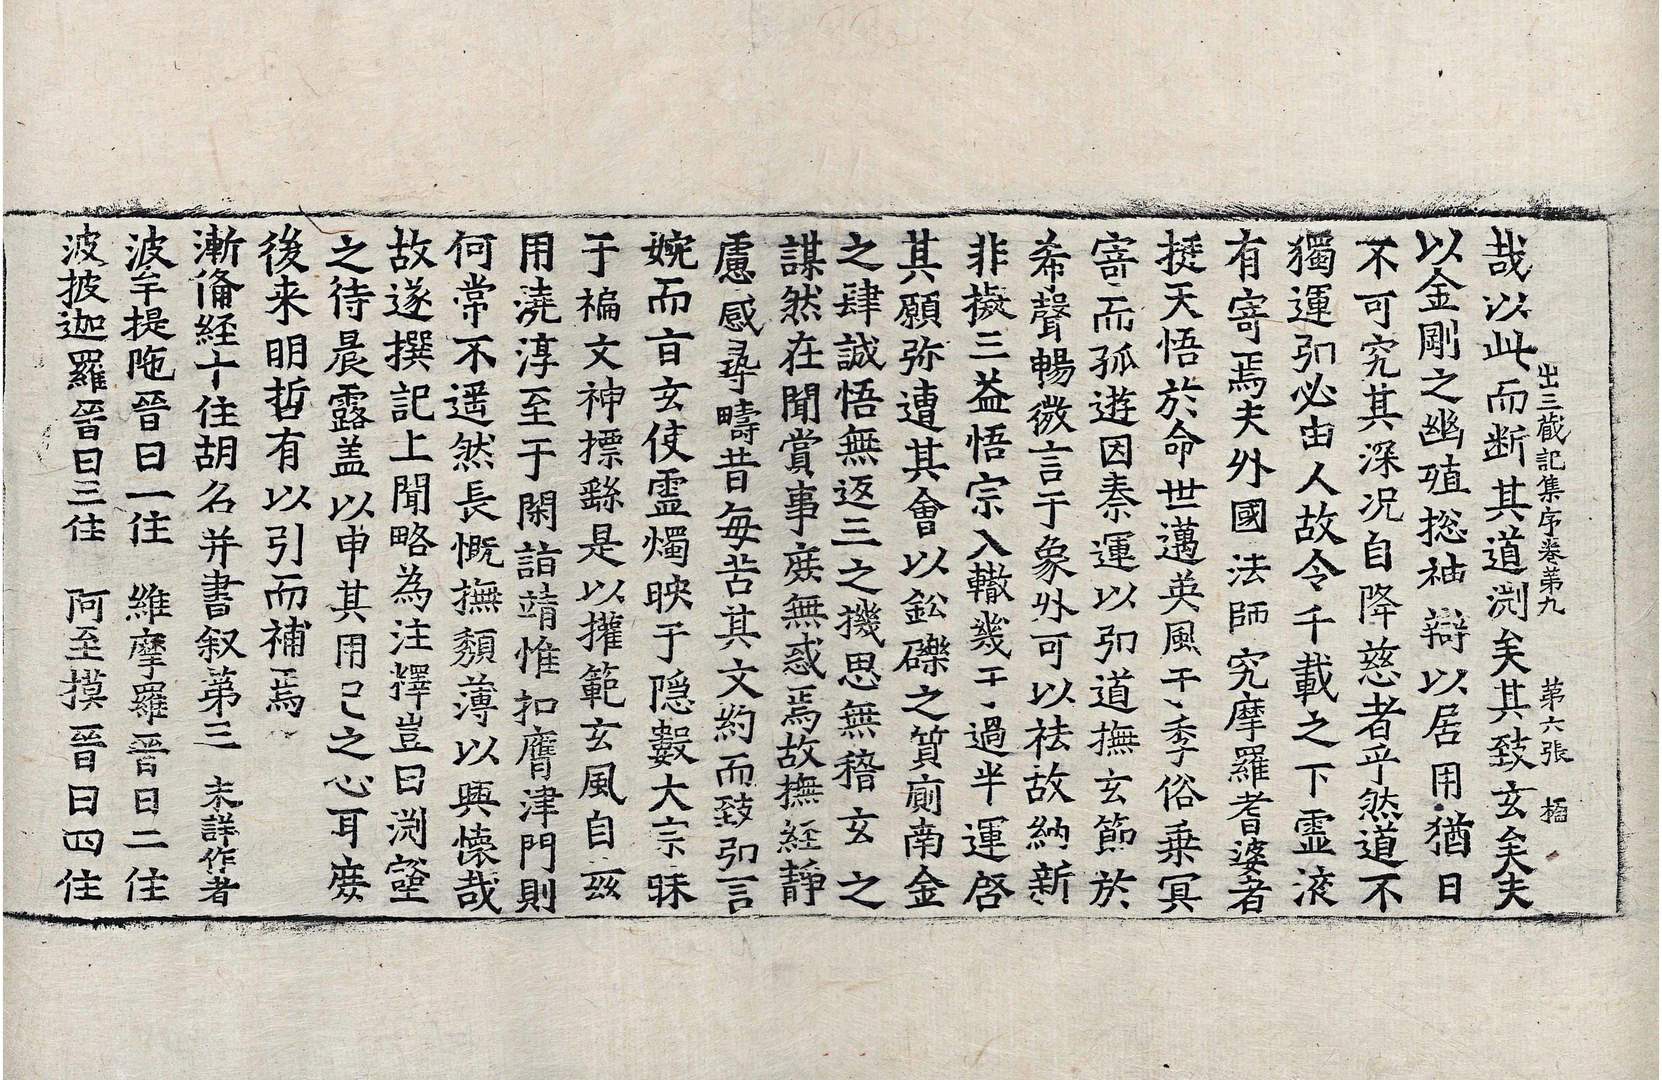 出三藏記集序卷第九 第六張 楢
哉以此而断其道渕矣其致玄矣夫
以金剛之幽殖捴袖辯以居用猶日
不可究其深况自降慈者乎然道不
獨運弘必由人故令千載之下霊液
有寄焉夫外國法師究摩羅耆婆者
挺天悟於命世邁英風于季俗乗冥
寄而孤遊因秦運以弘道撫玄節於
希聲暢微言于象外可以祛故納新
非擬三益悟宗入轍幾于過半運啓
其願弥遭其會以鈆礫之質廁南金
之肆誠悟無返三之機思無稽玄之
謀然在聞賞事庻無惑焉故撫經静
慮感尋疇昔每苦其文約而致弘言
婉而旨玄使霊燭映于隠數大宗昧
于褊文神摽繇是以攉範玄風自兹
用澆淳至于閑詣靖惟扣膺津門則
何常不遥然長慨撫頽薄以興懐哉
故遂撰記上聞略為注釋豈曰渕壑
之待晨露盖以申其用己之心耳庻
後来明哲有以引而補焉
漸俻經十住胡名并書叙第三 未詳作者
波牟提陁晉曰一住 維摩羅晉曰二住
波披迦羅晉曰三住 阿至摸晉曰四住